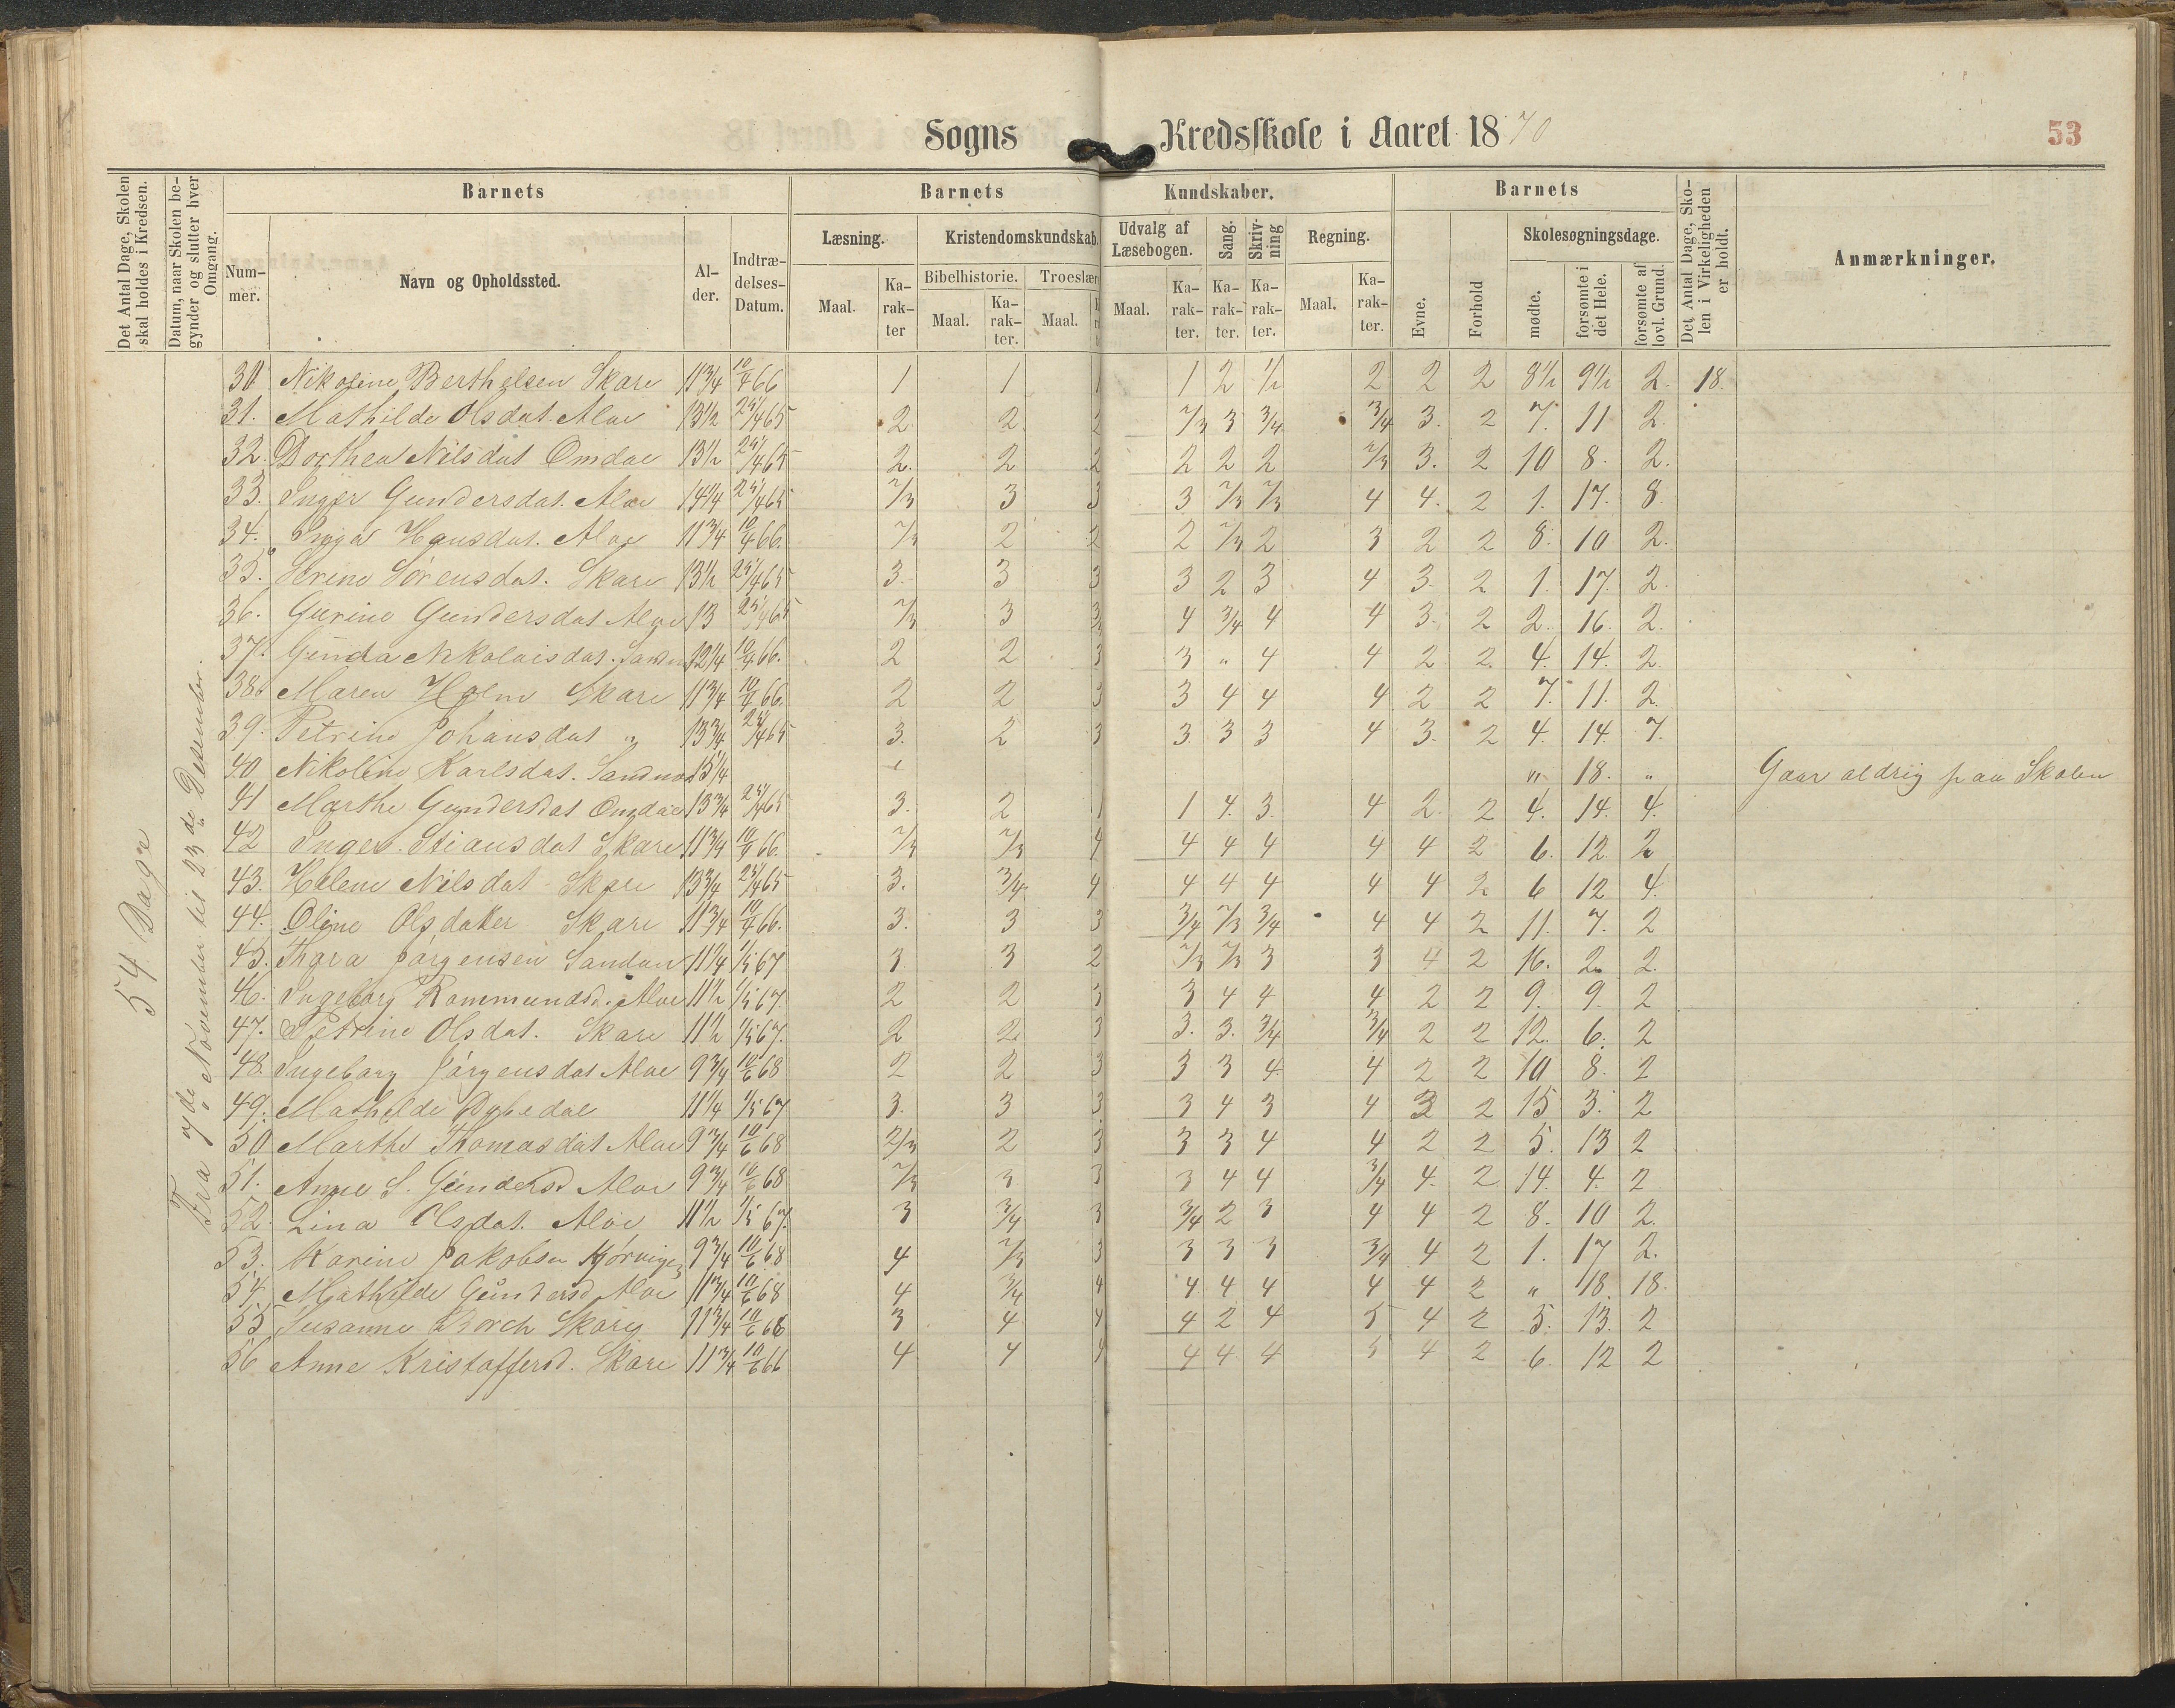 Sogns Kredsskole i Aaret 1870 53
Det Antal Dage, Skolen skal holdes i Kredsen.
Datum, naar Skolen begynder og slutter hver Omgang.
Barnets Barnets Kundskaber. Barnets
Det Antal Dage, Skolen i Virkeligheden er holdt.
Anmærkninger.
Nummer. Navn og Opholdssted. Alder. Indtrædelses-Datum.
Læsning. Kristendomskundskab. Udvalg af Læsebogen. Sang. Skrivning Regning. Evne. Forhold Skolesøgningsdage.
Bibelhistorie. Troeslær
Maal. Karakter Maal. Karakter. Maal. Maal. Karakter. Karakter. Karakter. Maal. Karakter. mødte. forsømte i det Hele. forsømte af lovl. Grund.
54 Dage
Fra 7de November til 23de Desember.
30 Nikoline Berthelsen Skare 11 3/4 10/4 66 1 1 1 1 2 1/2 2 2 2 8 1/2 9 1/2 2. 18.
31. Mathilde Olsdat. Aloe 13 1/2 25/4 65 2. 2. 2 2/3 3 3/4 3/4 3. 2 7. 11 2.
32. Dorthea Nilsdat Omdal 13 1/2 25/4 65 2. 2 2 2 2 2 2/3 3. 2 10 8. 2.
33. Inger Gundersdat. Aloe 14 1/4 25/4 65 2/3 3 3 3 2/3 2/3 4 4. 2 1. 17. 8.
34. Inga Hansdat. Aloe 11 3/4 10/4 66. 2/3 2 2 2 2/3 2 3 2 2 8. 10 2.
35. Serine Sørensdat. Skare 13 1/2 25/4 65 3. 3 3 3 2 3 4 3. 2 1. 17. 2.
36. Gurine Gundersdat Aloe 13 25/4 65 2/3 3 3/4 4 3/4 4 4 3. 2 2. 16. 2.
37. Gunda Nikolaisdat. 12 1/4 10/4 66. 2 2 3 3 „ 4 4 2 2. 4. 14. 2.
38. Maren Holm Skare 11 3/4 10/4 66. 2 2 3 3 4 4 4 2 2 7. 11. 2.
39. Petrine Johansdat „ 13 3/4 25/4 65 3. 2 3 3. 3 3 4 3. 2 4. 14. 7.
40 Nikoline Karlsdat. 15 1/4 „ 18. „ Gaar aldrig paa Skolen
41 Marthe Gundersdat Omdal 13 3/4 25/4 65 3. 2 1 1 4. 3. 4 2. 2 4. 14. 4.
42 Inger Stiansdat Skare 11 3/4 10/4 66. 2/3 2/3 4 4 4 4 4 4 2 6. 12. 2
43. Helene Nilsdat Skare 13 3/4 25/4 65 3. 3/4 4 4 4 4 4 4 2 6 12 4.
44. Oline Olsdatter Skare 11 3/4 10/4 66. 3. 3 3 3/4 2/3 3/4 4 4 2 11. 7. 2
45. Thora Jørgensen 11 1/4 1/5 67 3 3 2 2/3 2/3 3 3 4 2 16. 2. 2.
46. Ingeborg Rommundsd. Aloe 11 1/2 1/5 67. 2 2 3 3 4 4 4 2 2 9. 9. 2
47. Petrine Olsdat. Skare 11 1/2 1/5 67. 2 2. 3 3. 3. 3/4 3/4 2 2 12. 6. 2
48. Ingeborg Jørgensdat Aloe 9 3/4 10/6 68 2 2 3 3 3 4. 4 2 2 10 8. 2
49. Mathilde Dybedal 11 1/4 1/5 67 3. 3 3. 3 4 3 4 3 2 15 3. 2
50 Marthe Thomasdat Aloe 9 3/4 10/6 68 2/3 2 3 3 3 4 4 2 2 5. 13 2
51. Anne S. Gundersd Aloe 9 3/4 10/6 68 2/3 3 3 3 4 4 3/4 4. 2 14. 4. 2
52. Lina Olsdat. Aloe 11 1/2 1/5 67. 3 3/4 3 3/4 2 3 4 4 2 8. 10 2.
53. Karine Jakobsen 9 3/4 10/6 68 4 2/3 3 3 3 3 3/4 4 2 1. 17 2.
54. Mathilde Gundersd Aloe 11 3/4 10/6 68 4 3/4 4 4 4 4 4 4 2 „ 18. 18.
55 Susanne Borch Skare 11 3/4 10/6 66 3 4. 4 4 2 4 5 4 2 5. 13. 2
56 Anne Kristoffersd. Skare 11 3/4 10/6 66 4 4 4 4 4 4 5 4 2 6. 12 2